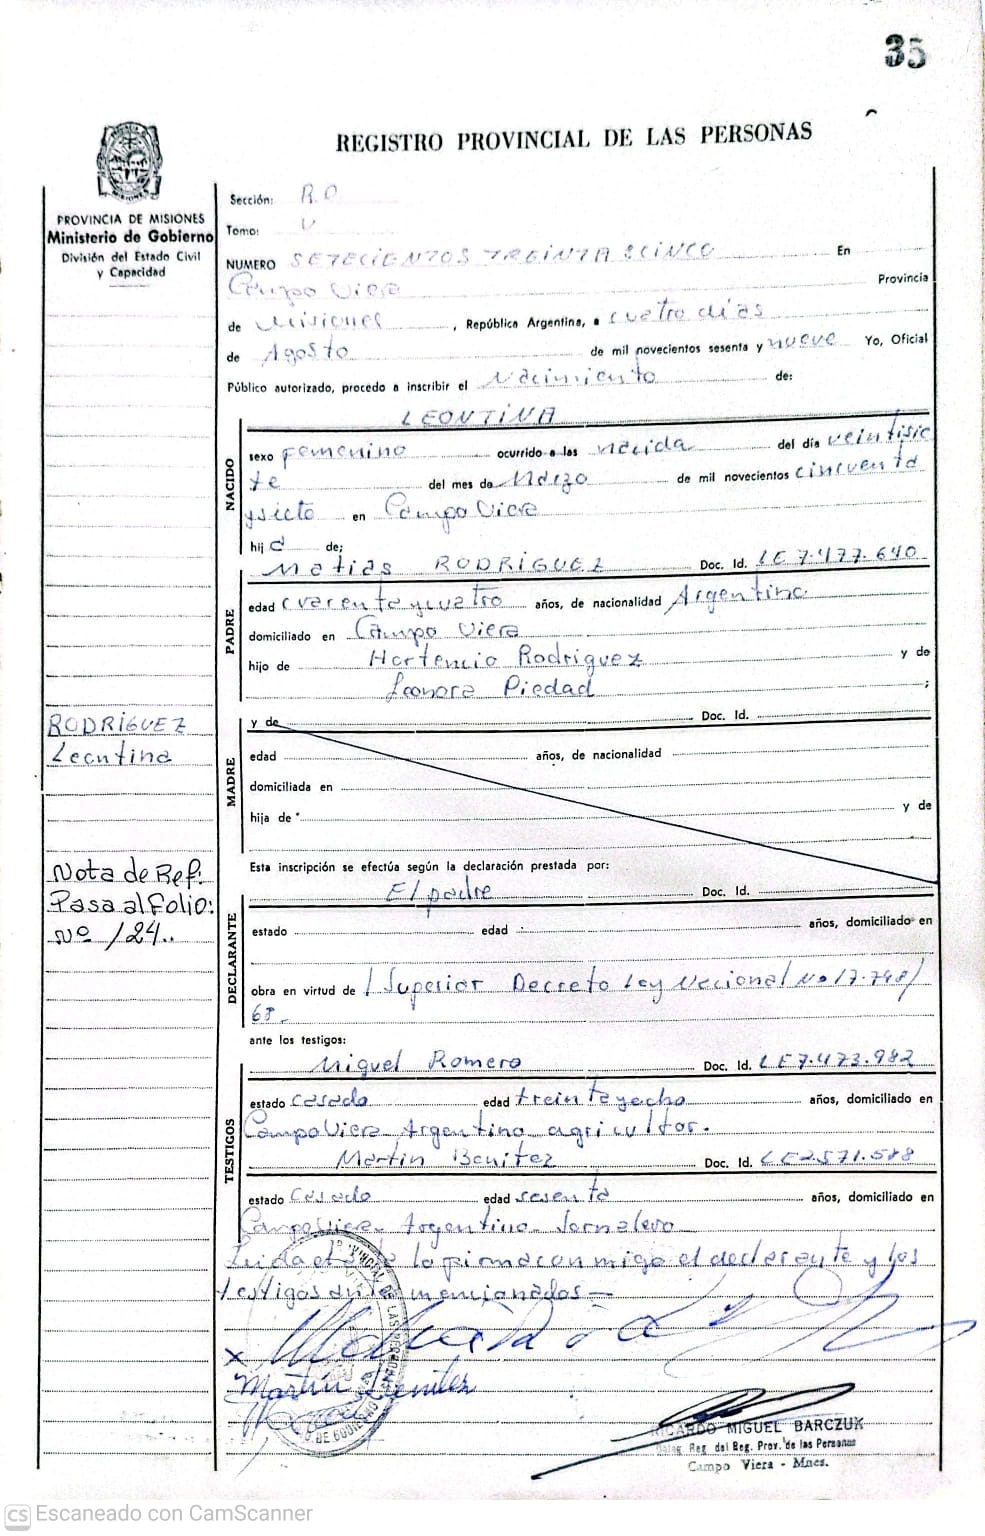 35
REGISTRO PROVINCIAL DE LAS PERSONAS
PROVINCIA DE MISIONES
Ministerio de Gobierno
División del Estado Civil
y Capacidad
Sección: R.O
Tomo: V
NUMERO SETECIENTOS TREINTA Y CINCO En
Campo Viera Provincia
de Misiones, República Argentina, a cuatro dias
de Agosto de mil novecientos sesenta y nueve Yo, Oficial
Público autorizado, procedo a inscribir el Nacimiento de:
LEONTINA
NACIDO
sexo femenino ocurrido a las nacida del día veintisie
te del mes de Marzo de mil novecientos cincuenta
y siete en Campo Viera
hij a de;
Matias RODRIGUEZ Doc. Id. LE 7.477.640
PADRE
edad cuarenta y cuatro años, de nacionalidad Argentina
domiciliado en Campo Viera
hijo de Hortencio Rodriguez y de
Leonora Piedad ;
RODRIGUEZ
Leontina
MADRE
y de Doc. Id.
edad años, de nacionalidad
domiciliada en
hija de y de
Nota de Ref:
Pasa al Folio:
Nº 124..
Esta inscripción se efectúa según la declaración prestada por:
El padre Doc. Id.
DECLARANTE
estado edad años, domiciliado en
obra en virtud de / Superior Decreto Ley Nacional No 17.748/
68.-
ante los testigos:
Miguel Romero Doc. Id. LE 7.473.982
TESTIGOS
estado casado edad treinta y ocho años, domiciliado en
Campo Viera Argentino agricultor.
Martin Benitez Doc. Id. LE 2.571.588
estado casado edad sesenta años, domiciliado en
Campo Viera Argentino Jornalero
Leida el la firma conmigo el declarante y los
testigos antes mencionados —
x
Martin Benitez
RICARDO MIGUEL BARCZUK
Deleg. Reg. del Reg. Prov. de las Personas
Campo Viera - Mnes.
CS Escaneado con CamScanner